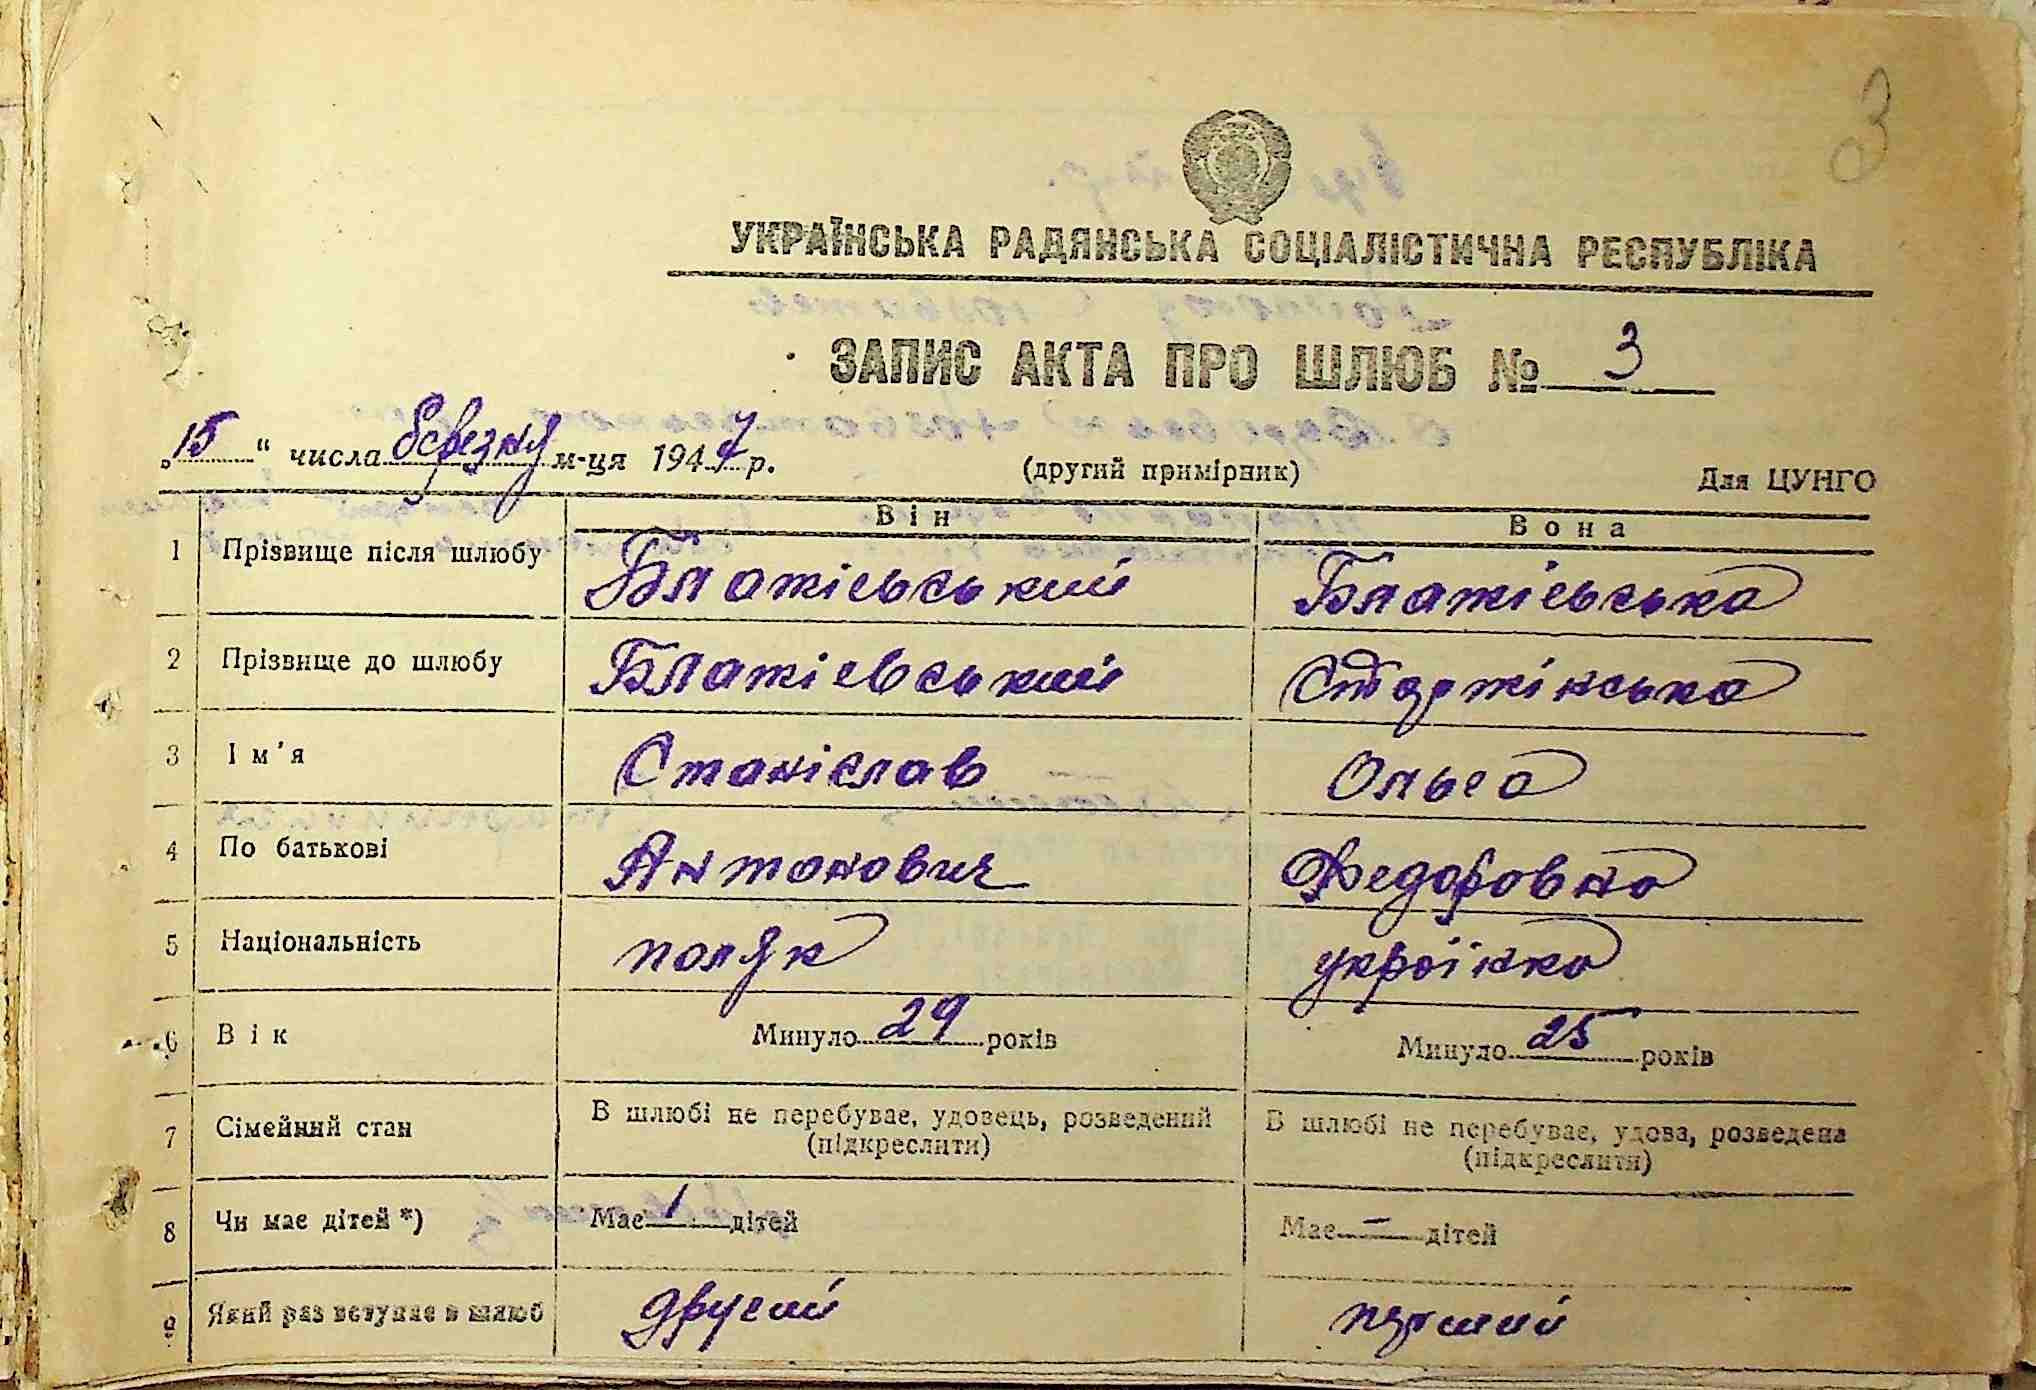 3
УКРАЇНСЬКА РАДЯНСЬКА СОЦІАЛІСТИЧНА РЕСПУБЛІКА
ЗАПИС АКТА ПРО ШЛЮБ № 3
„15“ числа березня м-ця 1947 р. (другий примірник) Для ЦУНГО
Він Вона
1 Прізвище після шлюбу Блажієвський Блажієвська
2 Прізвище до шлюбу Блажієвський Старжінська
3 Ім'я Станіслав Ольга
4 По батькові Антонович Федоровна
5 Національність поляк українка
6 Вік Минуло 29 років Минуло 25 років
7 Сімейний стан В шлюбі не перебуває, удовець, розведений В шлюбі не перебуває, удова, розведена
(підкреслити) (підкреслити)
8 Чи має дітей *) Має 1 дітей Має – дітей
9 Який раз вступає в шлюб другий перший